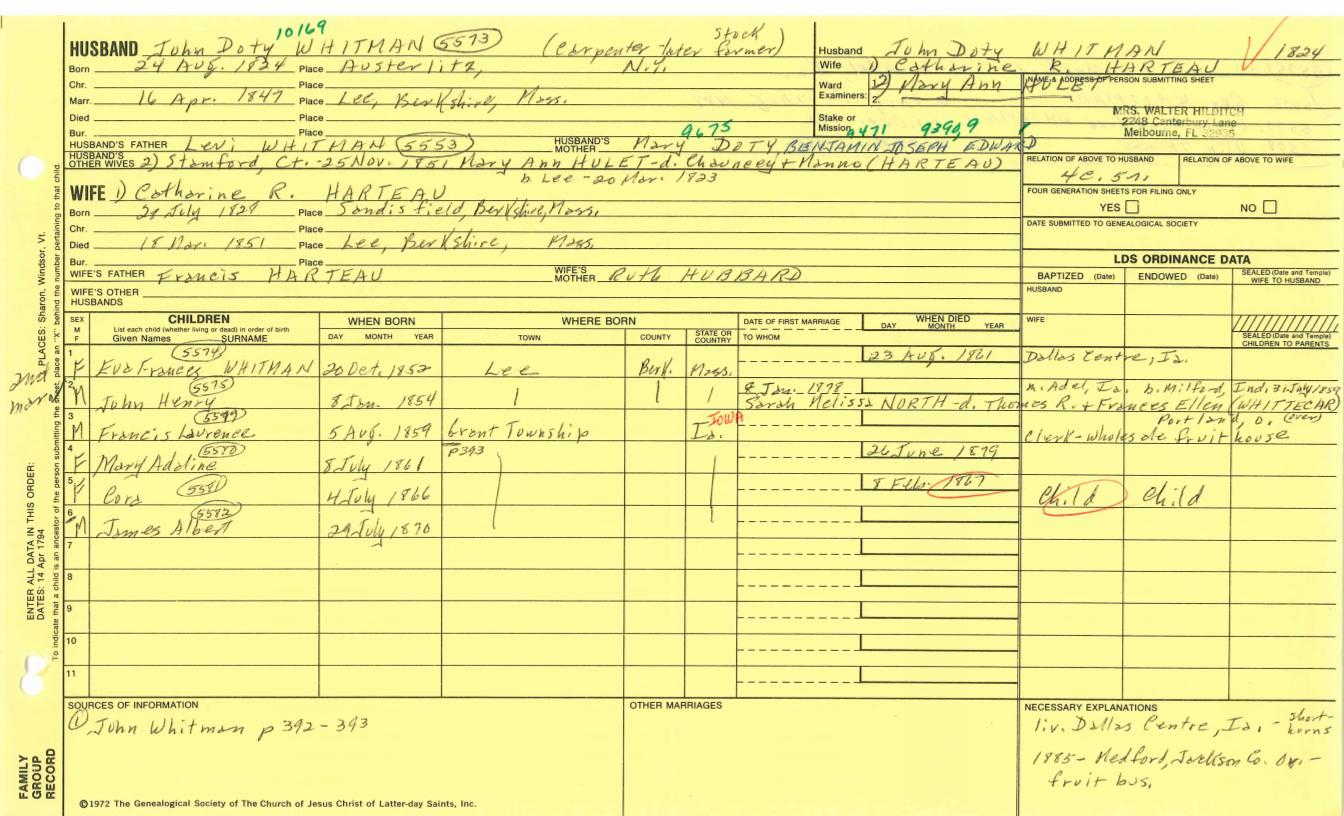 10169
HUSBAND John Doty WHITMAN 5573 (Carpenter later stock farmer)
Born 24 Aug. 1824 Place Austerlitz, N.Y.
Chr. Place
Marr. 16 Apr. 1847 Place Lee, Berkshire, Mass.
Died Place
Bur. Place
HUSBAND'S FATHER Levi WHITMAN 5553 HUSBAND'S MOTHER Mary DOTY, BENJAMIN JOSEPH EDWARD
9675 9471 93969
HUSBAND'S OTHER WIVES 2) Stamford, Ct. - 25 Nov. 1851 Mary Ann HULET - d. Chauncey + Manna (HARTEAU)
b. Lee - 20 Mar. 1823
Husband John Doty WHITMAN 1824
Wife 1) Catharine R. HARTEAU
Ward Examiners: 2) Mary Ann HULET
2.
Stake or Mission
NAME & ADDRESS OF PERSON SUBMITTING SHEET
MRS. WALTER HILDITCH
2248 Canterbury Lane
Melbourne, FL 32935
RELATION OF ABOVE TO HUSBAND RELATION OF ABOVE TO WIFE
4c. 5r.
FOUR GENERATION SHEETS FOR FILING ONLY
YES NO
DATE SUBMITTED TO GENEALOGICAL SOCIETY
WIFE 1) Catharine R. HARTEAU
Born July 1829 Place Sandisfield, Berkshire, Mass.
Chr. Place
Died 18 Mar. 1851 Place Lee, Berkshire, Mass.
Bur. Place
WIFE'S FATHER Francis HARTEAU WIFE'S MOTHER Ruth HUBBARD
WIFE'S OTHER HUSBANDS
LDS ORDINANCE DATA
BAPTIZED (Date) ENDOWED (Date) SEALED (Date and Temple) WIFE TO HUSBAND
HUSBAND
WIFE
SEALED (Date and Temple) CHILDREN TO PARENTS
SEX M F CHILDREN WHEN BORN WHERE BORN DATE OF FIRST MARRIAGE WHEN DIED
List each child (whether living or dead) in order of birth
Given Names SURNAME DAY MONTH YEAR TOWN COUNTY STATE OR COUNTRY TO WHOM DAY MONTH YEAR
2nd marr
1 F 5574 Eva Frances WHITMAN 20 Oct. 1852 Lee Berk. Mass. 23 Aug. 1861 Dallas Centre, Ia.
2 M 5575 John Henry 8 Jan. 1854 8 Jan. 1878 m. Adel, Ia. b. Milford, Ind. 31 July 1859
Sarah Melissa NORTH - d. Thomes R. + Frances Ellen (WHITTECAR)
3 M 5579 Francis Laurence 5 Aug. 1859 Grant Township IOWA Ia. Portland, O. (over)
Clerk - wholesale fruit house
4 F 5580 Mary Adaline 8 July 1861 p393 26 June 1879
5 F 5581 Cora 4 July 1866 8 Feb. 1867 Child Child
6 M 5582 James Albert 29 July 1870
7
8
9
10
11
SOURCES OF INFORMATION
① John Whitman p 392-393
OTHER MARRIAGES
NECESSARY EXPLANATIONS
liv. Dallas Centre, Ia. - short-horns
1885 - Medford, Jackson Co. Or. -
fruit bus.
©1972 The Genealogical Society of The Church of Jesus Christ of Latter-day Saints, Inc.
FAMILY GROUP RECORD
ENTER ALL DATA IN THIS ORDER:
DATES: 14 Apr 1794
PLACES: Sharon, Windsor, Vt.
To indicate that a child is an ancestor of the person submitting the sheet, place an "X" behind the number pertaining to that child.